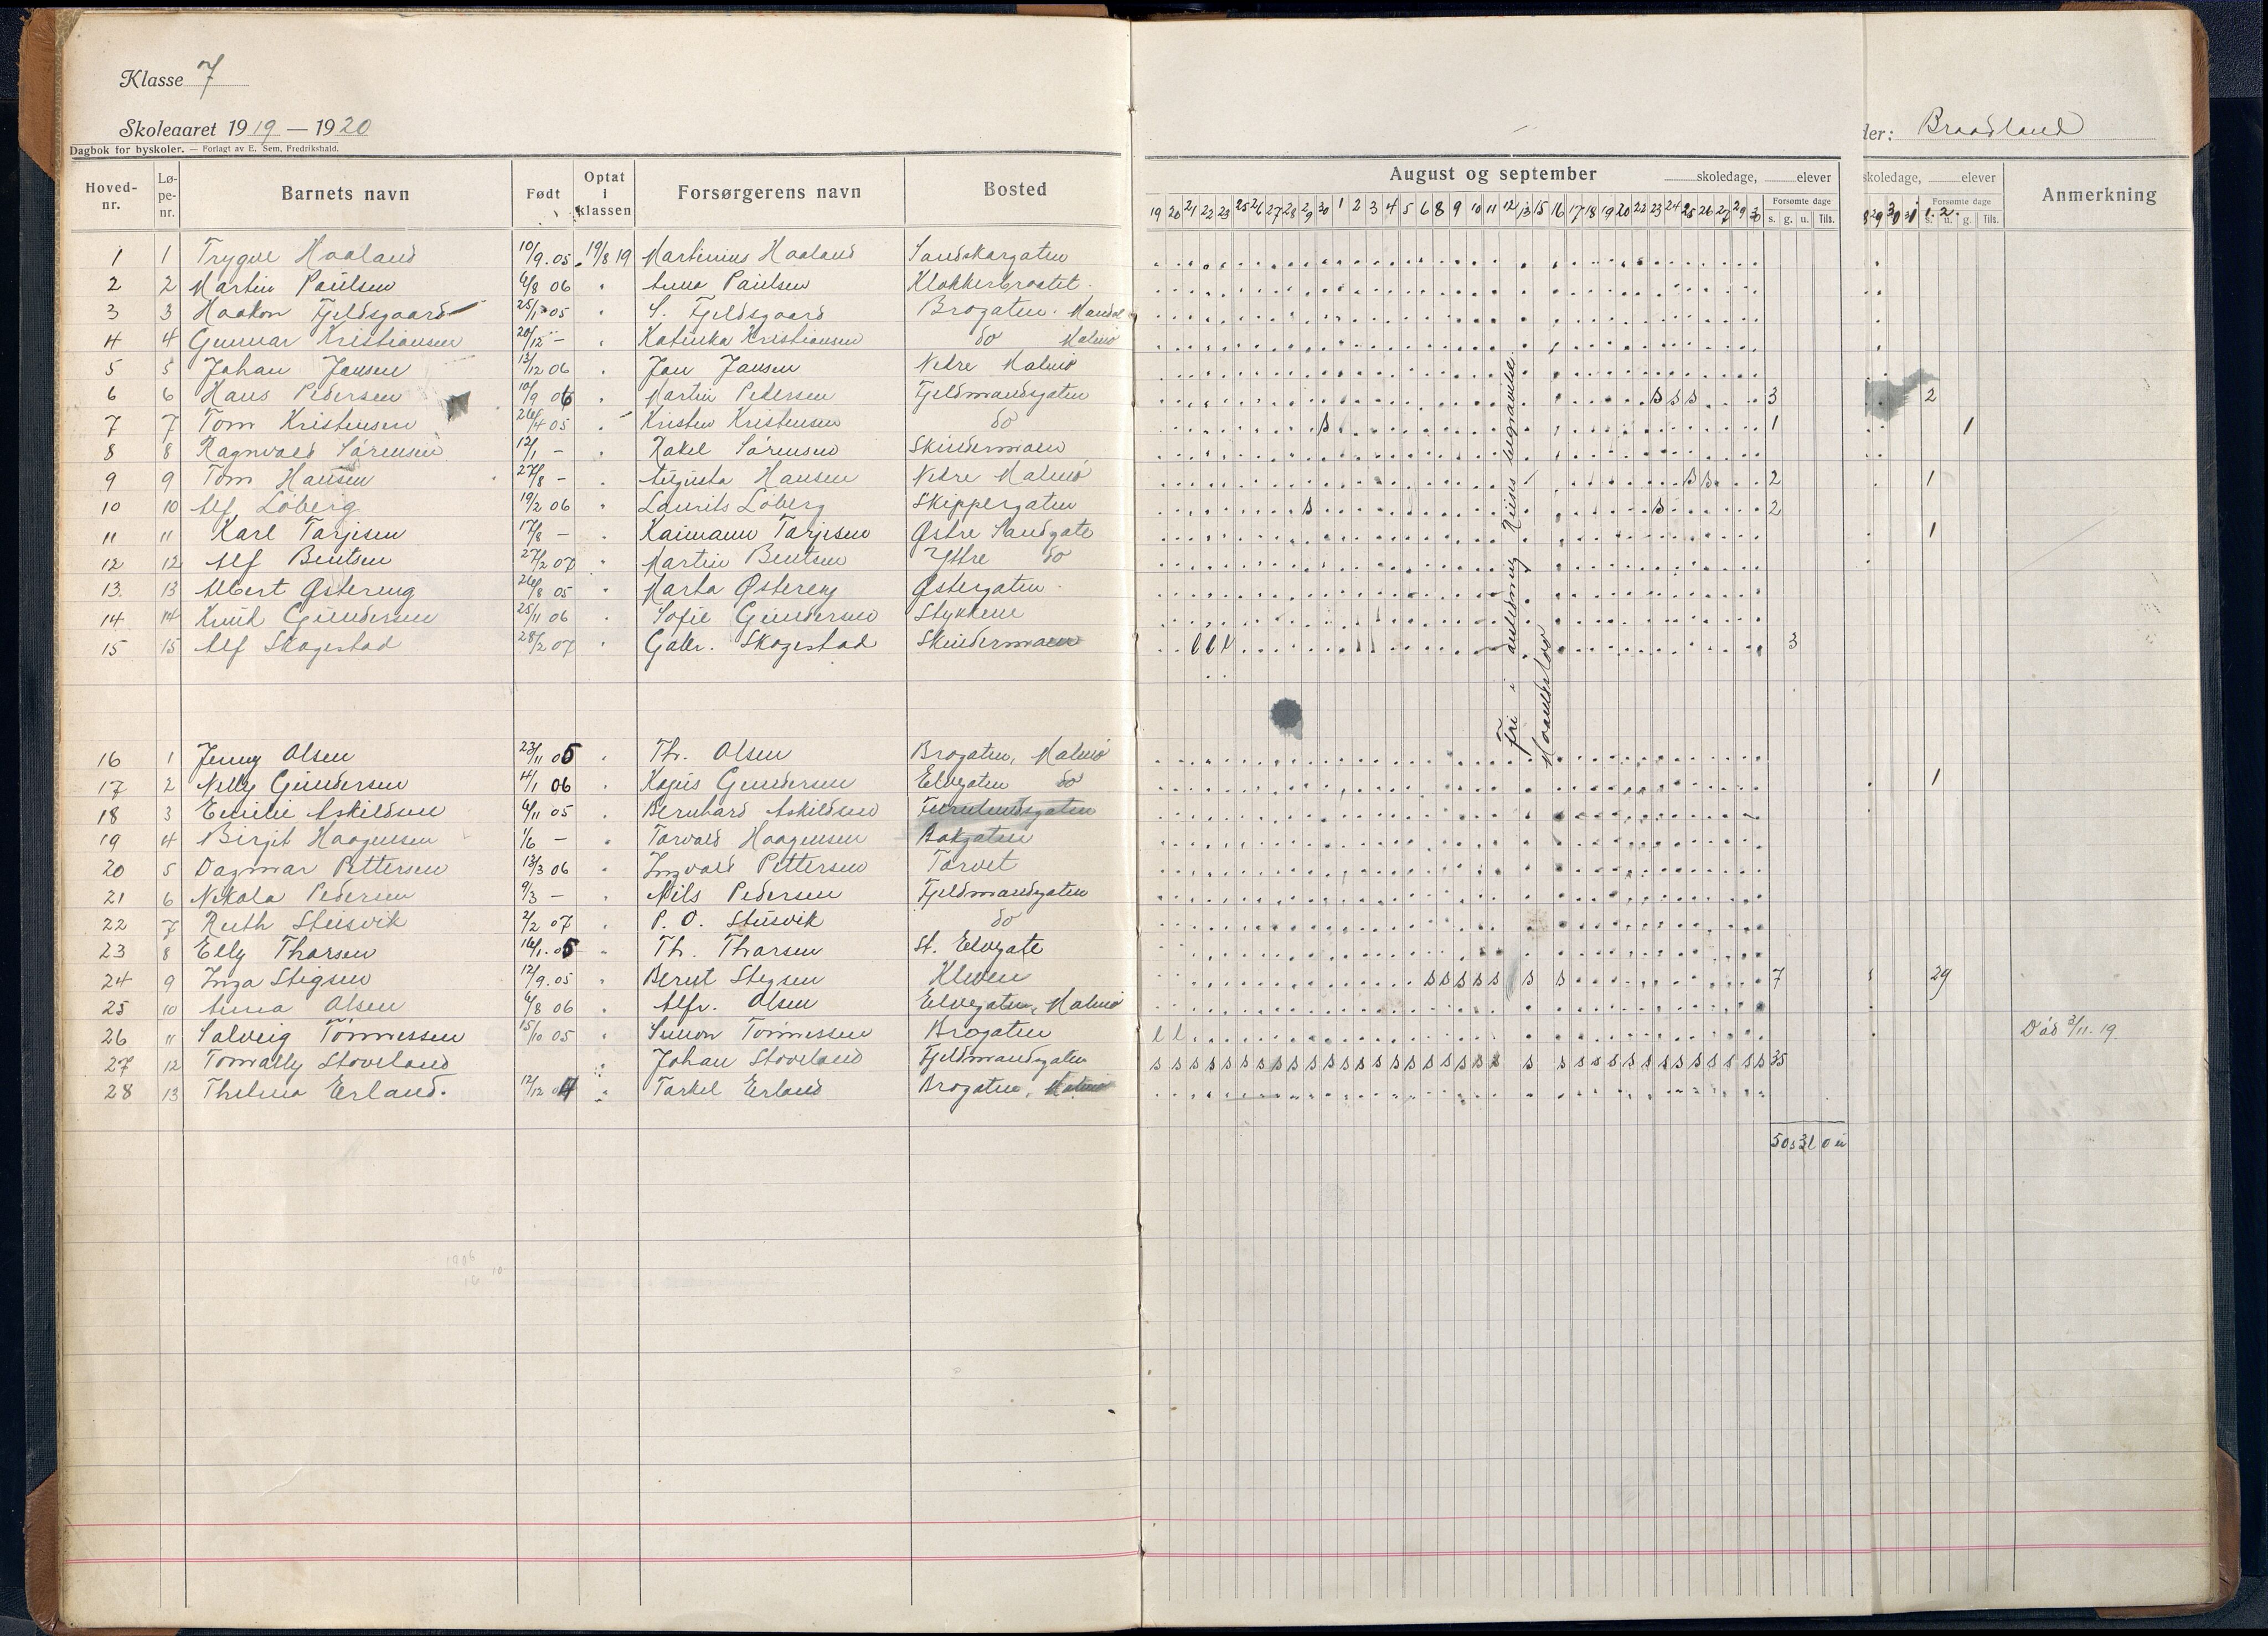 Klasse 7
Skoleaaret 1919 — 1920
Dagbok for byskoler. — Forlagt av E. Sem, Fredrikshald.
der: Braadland
Hoved-nr. Lø-pe-nr. Barnets navn Født Optat i klassen Forsørgerens navn Bosted
August og september skoledage, elever
skoledage, elever Anmerkning
19 20 21 22 23 25 26 27 28 29 30 1 2 3 4 5 6 8 9 10 11 12 13 15 16 17 18 19 20 22 23 24 25 26 27 29 30 Forsømte dage s. g. u. Tils.
29 30 31 1. 2. Forsømte dage s. u. g. Tils.
1 1 Trygve Haaland 10/9.05 19/8 19 Martinius Haaland Sandskargaten
2 2 Martin Paulsen 6/8 06 " Anna Paulsen Klokkerbrostet
3 3 Haakon Fjeldsgaard 25/1 05 " S. Fjeldsgaard Brogaten. Mandal
4 4 Gunnar Kristiansen 20/12 — " Katinka Kristiansen do Malmø
5 5 Johan Jansen 13/12 06 " Jan Jansen Nedre Malmø
6 6 Hans Pedersen 10/9 06 " Martin Pedersen Fjeldmandsgaten s s s 3 2
7 7 Tom Kristensen 26/4 05 " Kristen Kristensen do s 1 1
8 8 Ragnvald Sørensen 12/1 — " Rakel Sørensen Skindermoen
9 9 Tom Hansen 27/8 — " Augusta Hansen Nedre Malmø s s 2 1
10 10 Alf Löberg 19/2 06 " Laurits Löberg Skippergaten s s 2
11 11 Karl Tarjesen 17/8 — " Kaimann Tarjesen Østre Sandgate 1
12 12 Alf Bentsen 27/2 07 " Martin Bentsen Ytre do
13. 13 Albert Østereng 26/8 05 " Marta Østereng Østergaten
14 14 Knut Gundersen 25/11 06 " Sofie Gundersen Stykkene
15 15 Alf Skogestad 28/2 07 " Gabr. Skogestad Skindermoen l l l 3
Fri i anledning Reises begravelse.
Maanedslov
16 1 Jenny Olsen 23/11 05 " Th. Olsen Brogaten, Malmø
17 2 Nelly Gundersen 4/1 06 " Gundersen Elvegaten do 1
18 3 Emilie Askildsen 6/11 05 " Bernhard Askildsen
19 4 Birgit Haagensen 1/6 — " Torvald Haagensen Bakgaten
20 5 Dagmar Pettersen 13/3 06 " Ingvald Pettersen Torvet
21 6 Nikola Pedersen 9/3 — " Nils Pedersen Fjeldmandsgaten
22 7 Ruth Stusvik 2/2 07 " P. O. Stusvik do
23 8 Elly Thorsen 16/1.05 " Th. Thorsen St. Elvegate
24 9 Inga Stigsen 12/9.05 " Berut Stigsen Kleven s s s s s s s 7 29
25 10 Anna Olsen 6/8 06 " Alfr. Olsen Elvegaten, Malmø
26 11 Solveig Tönnessen 15/10 05 " Simon Tönnessen Brogaten l l Død 3/11-19
27 12 Tomally Stoveland " Johan Stoveland Fjeldmandsgaten s s s s s s s s s s s s s s s s s s s s s s s s s s s s s s s s s s s 35
28 13 Thelma Erland. 12/12 04 " Tarkel Erland Brogaten, Malmø
50 s 3 l 0 u
1906
16 10